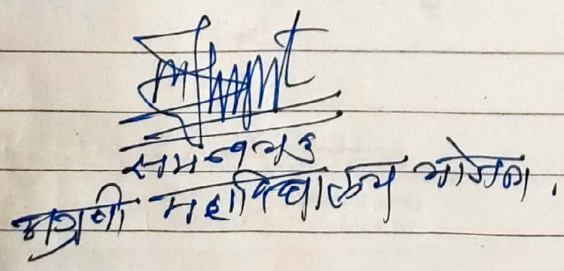 समन्वयक
अग्रणी महाविद्यालय योजना.